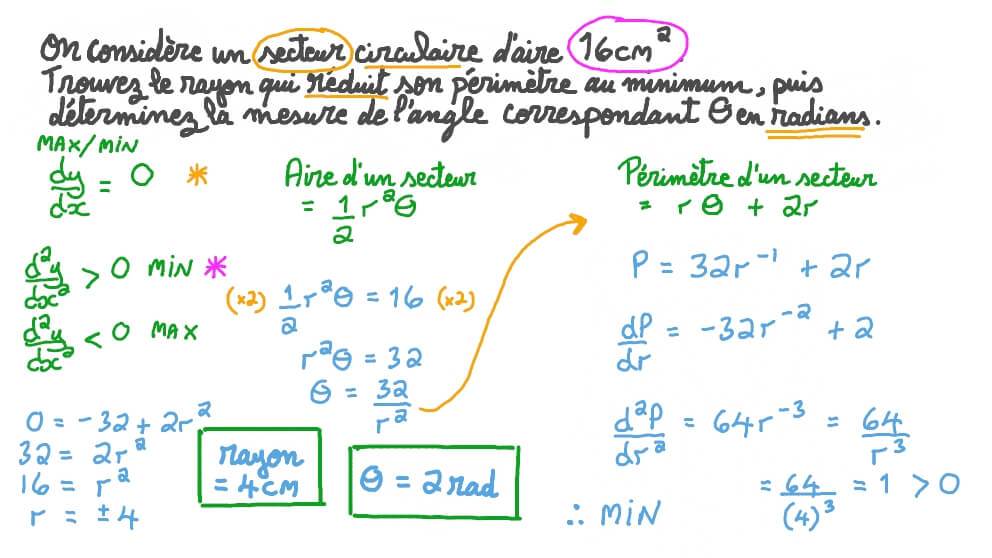 On considère un secteur circulaire d'aire 16cm²
Trouvez le rayon qui réduit son périmètre au minimum, puis
déterminez la mesure de l'angle correspondant θ en radians.
MAX/MIN
dy/dx = 0 *
d²y/dx² > 0 MIN *
d²y/dx² < 0 MAX
Aire d'un secteur
= 1/2 r²θ
(×2) 1/2 r²θ = 16 (×2)
r²θ = 32
θ = 32/r²
Périmètre d'un secteur
= rθ + 2r
P = 32r⁻¹ + 2r
dP/dr = -32r⁻² + 2
d²P/dr² = 64r⁻³ = 64/r³
= 64/(4)³ = 1 > 0
∴ MIN
0 = -32 + 2r²
32 = 2r²
16 = r²
r = ±4
rayon
= 4cm
θ = 2 rad